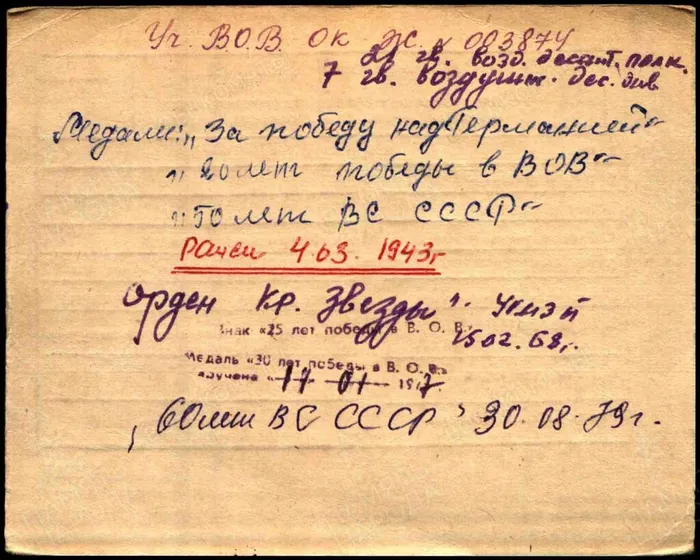 Уч. В.О.В. ОК Ж № 003874
21 гв. возд. десант. полк.
7 гв. воздушн. дес. див
Медали: „За победу над Германией"
„20 лет победы в ВОВ"
„50 лет ВС СССР"
Ранен 4.03. 1943г
Орден Кр. Звезды".
15.02.68г.
Знак «25 лет победы в В. О. В.»
Медаль «30 лет победы в В. О. В.»
вручена « 01 197
„60 лет ВС СССР" 30.08.79г.